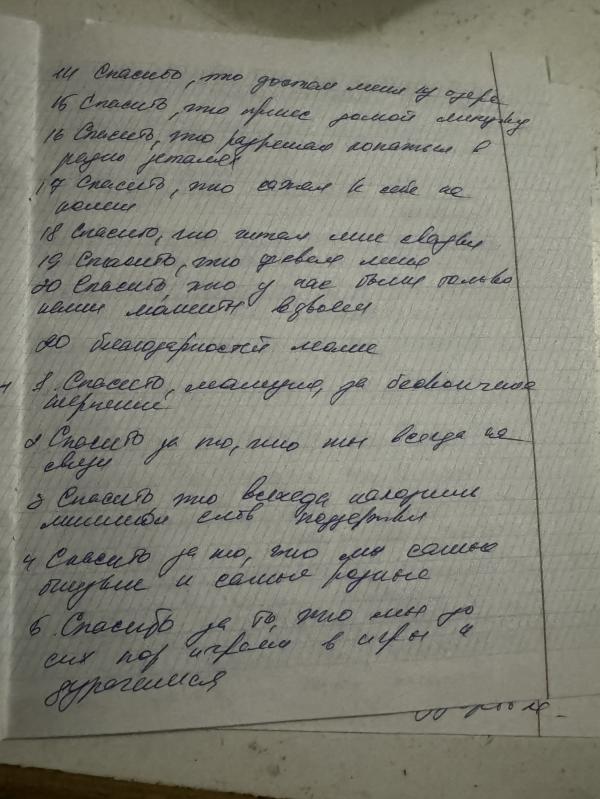 14 Спасибо, что достал меня из озера
15 Спасибо, что принес домой
16 Спасибо, что разрешал копаться в
радио деталях
17 Спасибо, что сажал к себе на
колени
18 Спасибо, что читал мне сказки
19 Спасибо, что меня
20 Спасибо что у нас были только
наши моменты вдвоем
20 благодарностей маме
1 Спасибо, мамочка, за бесконечное
терпение
2 Спасибо за то, что ты всегда на
связи
3 Спасибо что всегда находишь
слов поддержки
4 Спасибо за то, что мы самые
близкие и самые родные
5 Спасибо за то, что мы до
сих пор играем в игры и
дурачимся